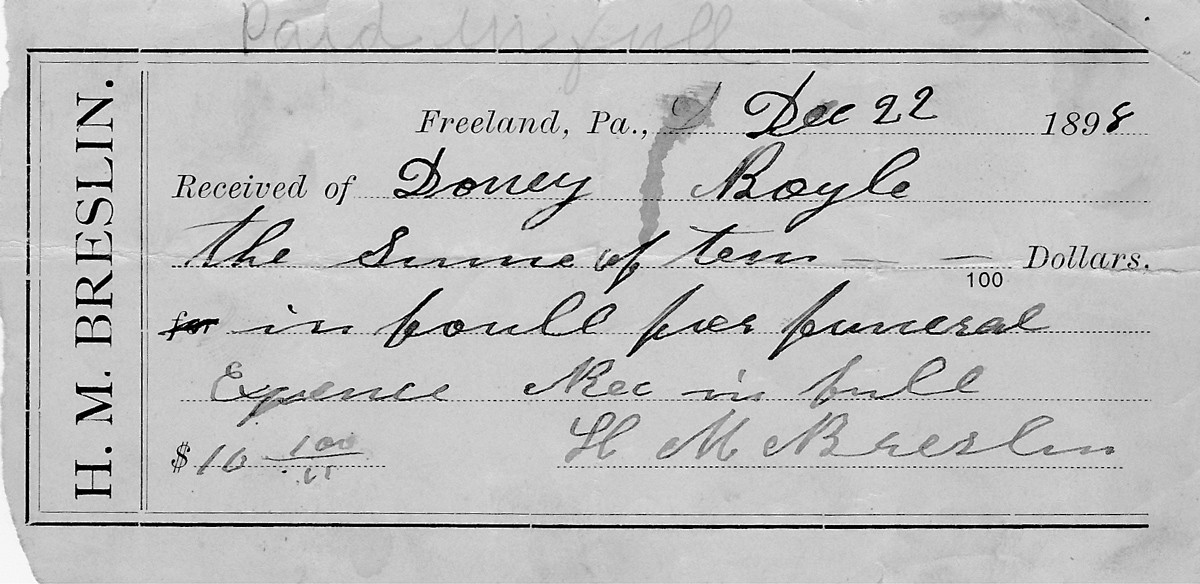 Paid in full
H. M. BRESLIN.
Freeland, Pa., D Dec 22 1898
Received of Doney Boyle
the Sume of ten — — 100 Dollars.
for in foull for funeral
Expence Rec in full
$ 10 100 H M Breslin